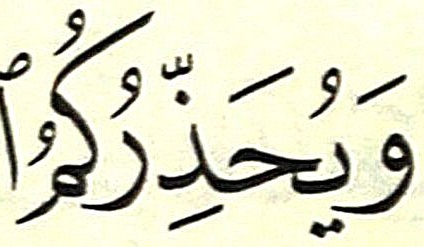 وَيُحَذِّرُكُمُ ٱ